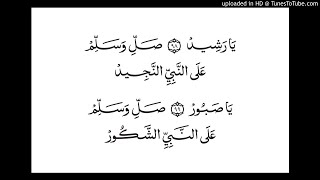 uploaded in HD @ TunesToTube.com
يَا رَشِيدُ ۝١١ صَلِّ وَسَلِّمْ
عَلَى النَّبِيِّ النَّجِيدِ
يَا صَبُورُ ۝١١ صَلِّ وَسَلِّمْ
عَلَى النَّبِيِّ الشَّكُورْ